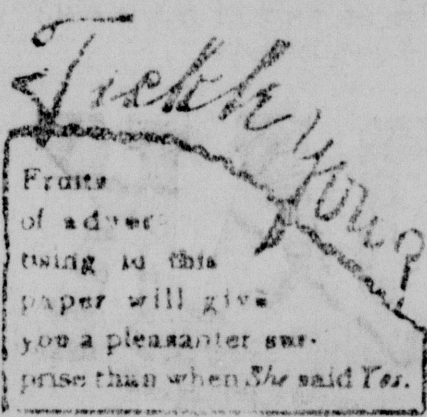 Tickle You?
Fruits
of adver
tising in this
paper will give
you a pleasanter sur-
prise than when She said Yes.